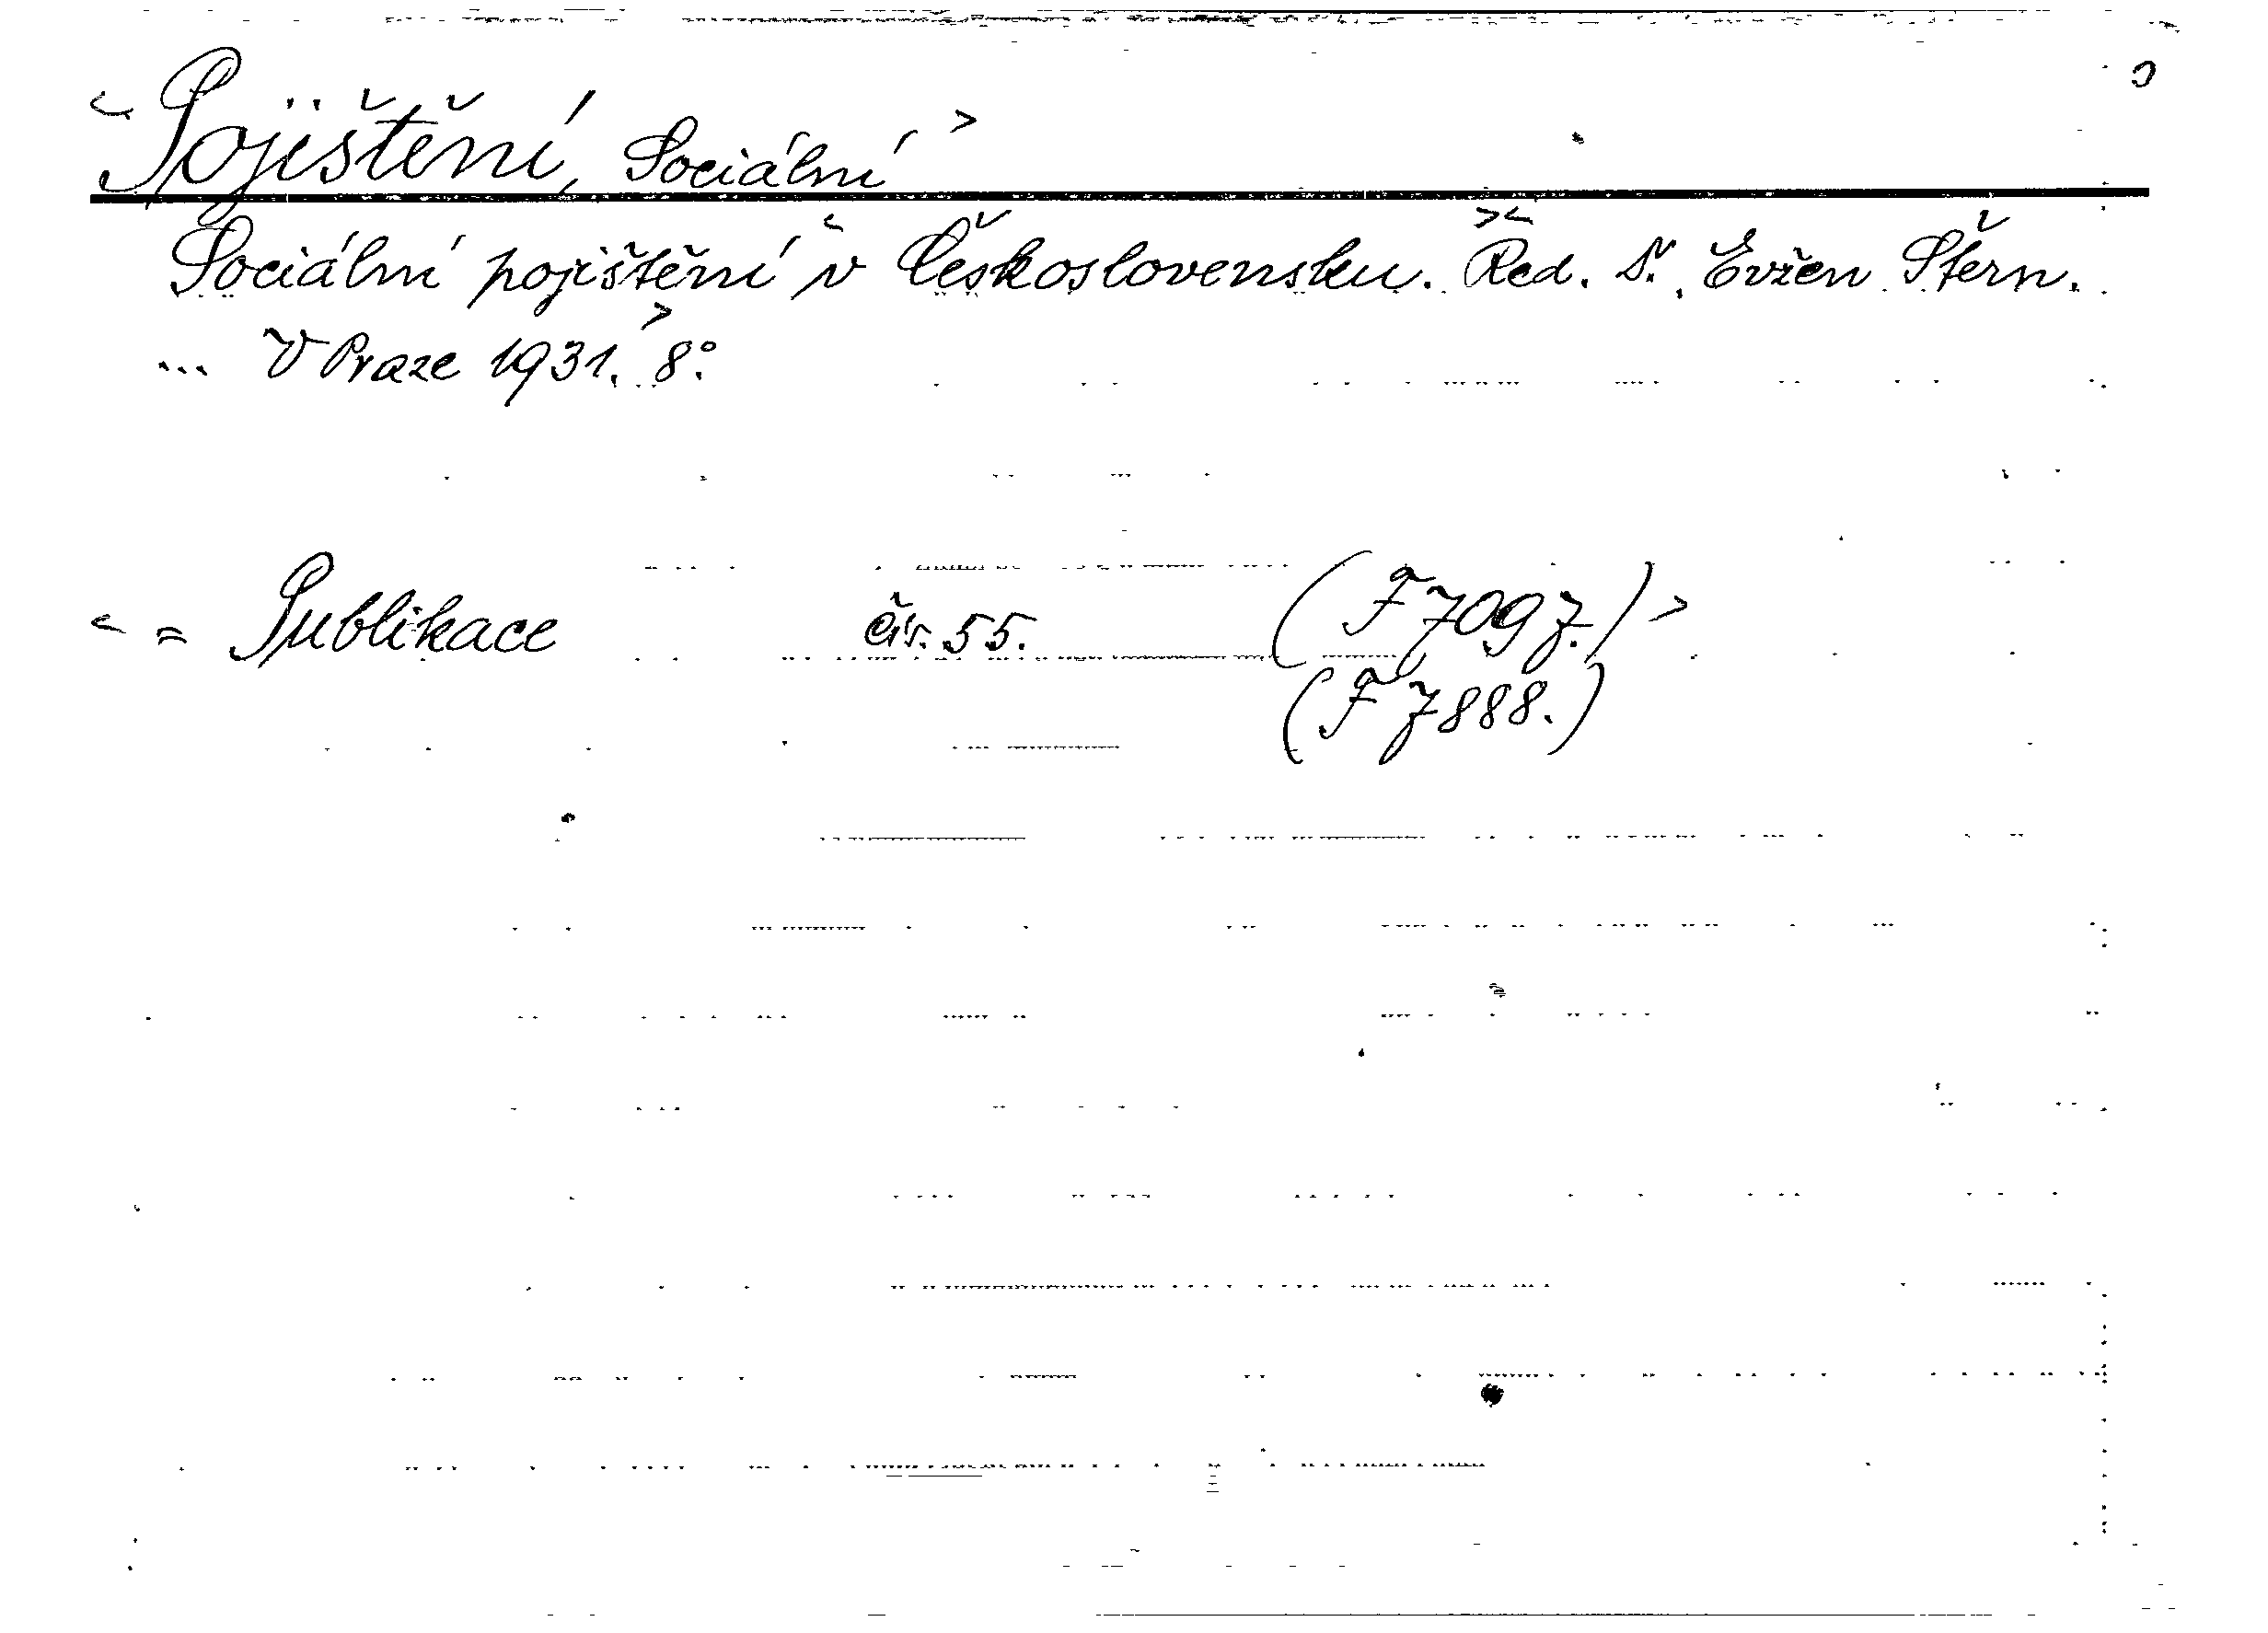 <Pojištění, Sociální>
Sociální pojištění <v Československu.> <Red. Dr. Evžen Štern.
... V Praze 1931.> 8°.
< = Publikace čís. 55. (F 7097.) >
(F 7888.)